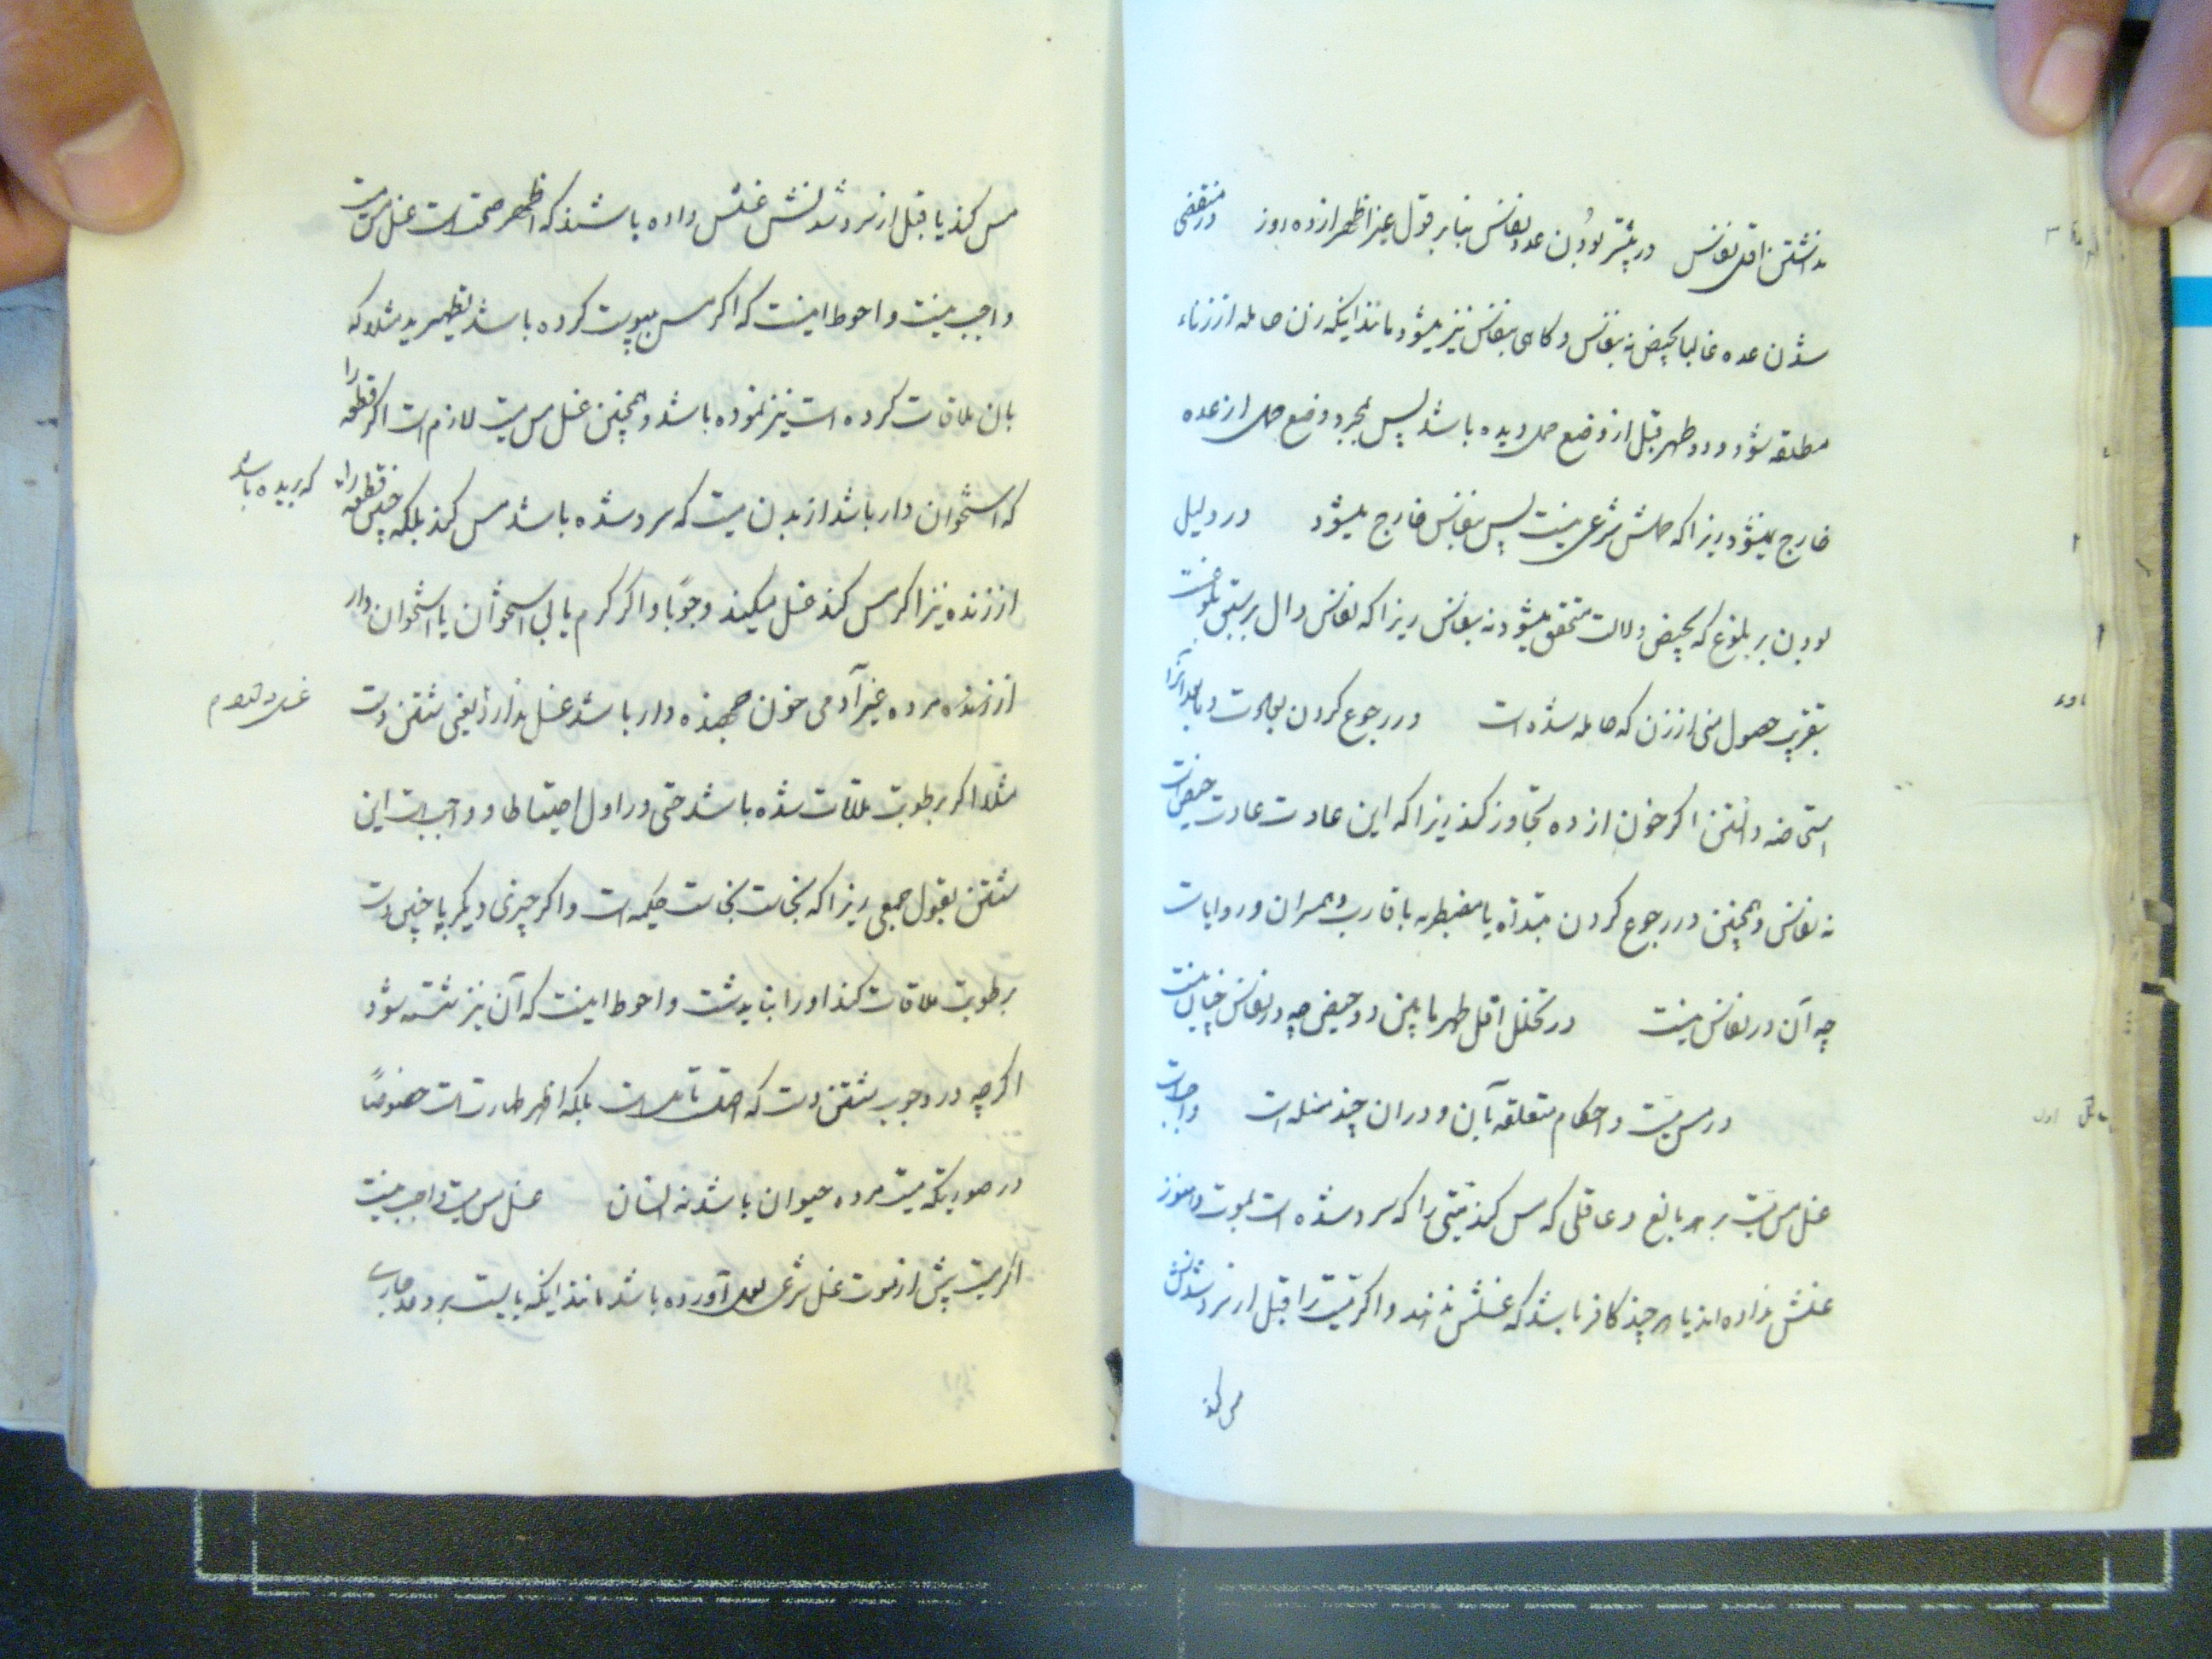 نداشتن اقل نفاس در بیشتر بودن عدد نفاس بنا بر قول غیر اظهر از ده روز در منقضی
شدن عده غالبا بحیض نه بنفاس و کاهی بنفاس نیز میشود مانند اینکه زن حامله از زناء
مطلقه شود و دو طهر قبل از وضع حمل دیده باشد پس بمجرد وضع حمل از عده
خارج نمیشود زیرا که حملش شرعی نیست پس بنفاس خارج میشود در دلیل
بودن بر بلوغ که بحیض دلالت متحقق میشود نه بنفاس زیرا که نفاس دال بر سبق بلوغست
بتقریب حصول منی از زن که حامله شده است در رجوع کردن بعادت و مابعد آنرا
استحاضه دانستن اکر خون از ده تجاوز کند زیرا که این عادت عادت حیض است
نه نفاس و همچنین در رجوع کردن مبتدأه یا مضطربه باقارب و همسران و روایات
چه آن در نفاس نیست در تخلل اقل طهر ما بین دو حیض چه در نفاس چنان نیست
در مس میت و احکام متعلقه بآن و در ان چند مسئله است واجب است
غسل مس میت بر هر بالغ و عاقلی که مس کند میتی را که سرد شده است بموت و هنوز
غسلش نداده اند یا هر چند کافر باشد که غسلش ندهند و اکر میت را قبل از سرد شدنش
مس کند
مس کند یا قبل از سرد شدنش غسلش داده باشند که اظهر صحت است غسل مس میت
واجب نیست و احوط اینست که اکر مس بیوست کرده باشد تطهیر ید مثلا که
بان ملاقات کرده است نیز نموده باشد و همچنین غسل مس میت لازم است اکر قطعه را
که استخوان دار باشد از بدن میت که سرد شده باشد مس کند بلکه چنین قطعه را
که بریده باشد
از زنده نیز اکر مس کند غسل میکند وجوبا و اکر کرم یا بی استخوان یا استخوان دار
از زنده مرده غیر آدمی خون جهنده دار باشد غسل ندارد یعنی شستن دست
مثلا اکر برطوبت ملاقات شده باشد حتی در اول احتیاطا و واجب است این
شستن بقول جمعی زیرا که نجاست نجاست حکمیه است و اکر چیزی دیکر با چنین دست
برطوبت ملاقات کند او را نباید شست و احوط اینست که آن نیز شسته شود
اکرچه در وجوب شستن دست که اصل تامل است بلکه اظهر طهارتست خصوصاً
در صورتیکه میت مرده حیوان باشد نه انسان غسل مس میت واجب نیست
اکر میت پیش از موت غسل شرعی بعمل آورده باشد مانند اینکه بایست برو حد جاری